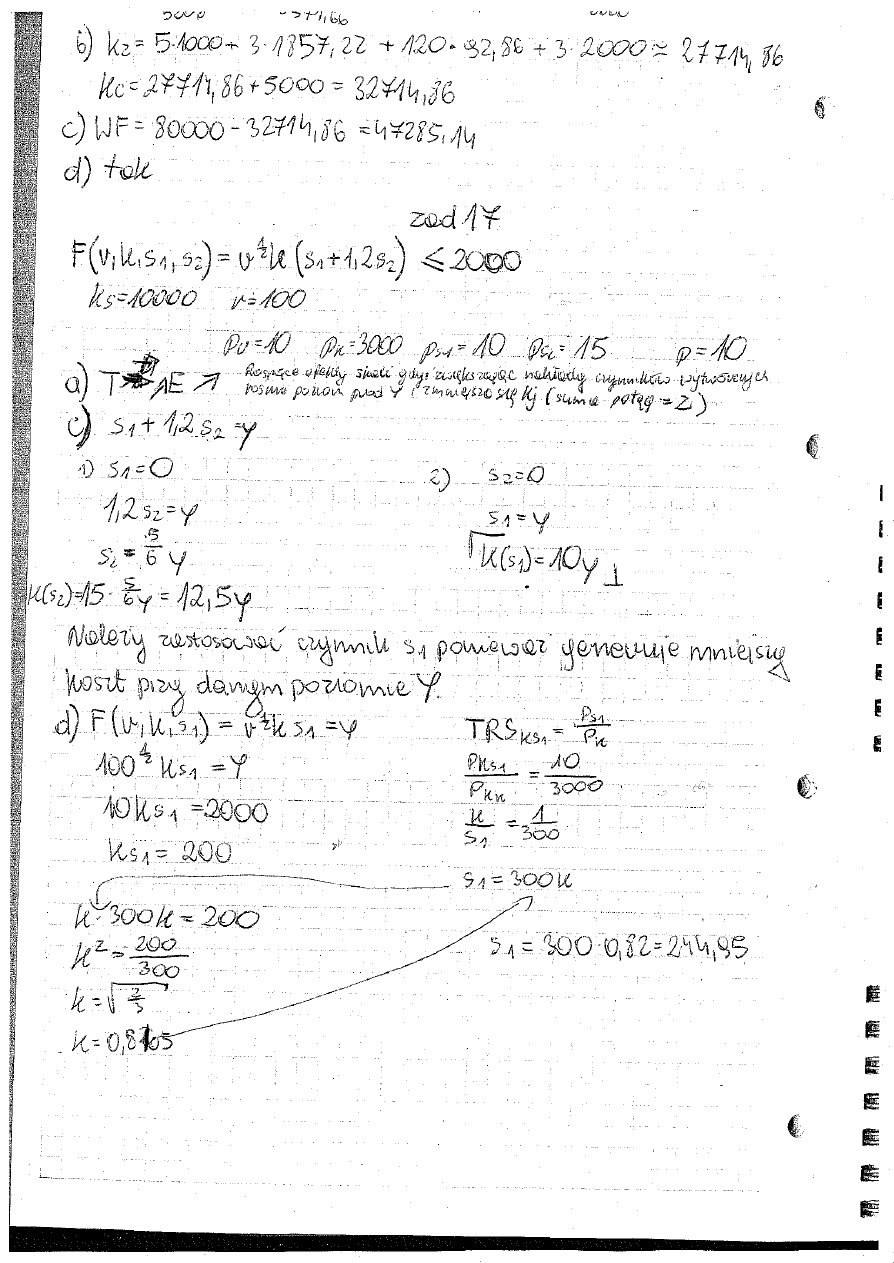 b) kz = 5·1000 + 3·1857,22 + 120·92,86 + 3·2000 ≈ 27714,86
Kc = 27714,86 + 5000 = 32714,86
c) WF = 80000 - 32714,86 = 47285,14
d) tak
zad 17
F(v,k,s1,s2) = v^½ k (s1 + 1,2s2) ≤ 2000
Ks = 10000 v = 100
pv = 10 pk = 3000 ps1 = 10 ps2 = 15 p = 10
a) T AE ↗ Rosnące efekty skali gdyż zwiększając nakłady czynników wytwórczych
rośnie ponad prod y i zmniejsza się Kj (suma potęg = 2½)
c) s1 + 1,2s2 = y
1) s1 = 0
1,2s2 = y
s2 = 5/6 y
K(s2) = 15 · 5/6 y = 12,5y
2) s2 = 0
s1 = y
K(s1) = 10y
Należy zastosować czynnik s1 ponieważ generuje mniejszy
koszt przy danym poziomie y.
d) F(v,k,s1) = v^½ k s1 = y
100^½ ks1 = y
10ks1 = 2000
ks1 = 200
k·300k = 200
k² = 200/300
k = √2/3
k = 0,8165
TRS ks1 = Ps1/Pk
PKs1/PKk = 10/3000
k/s1 = 1/300
s1 = 300k
s1 = 300·0,82 = 244,95